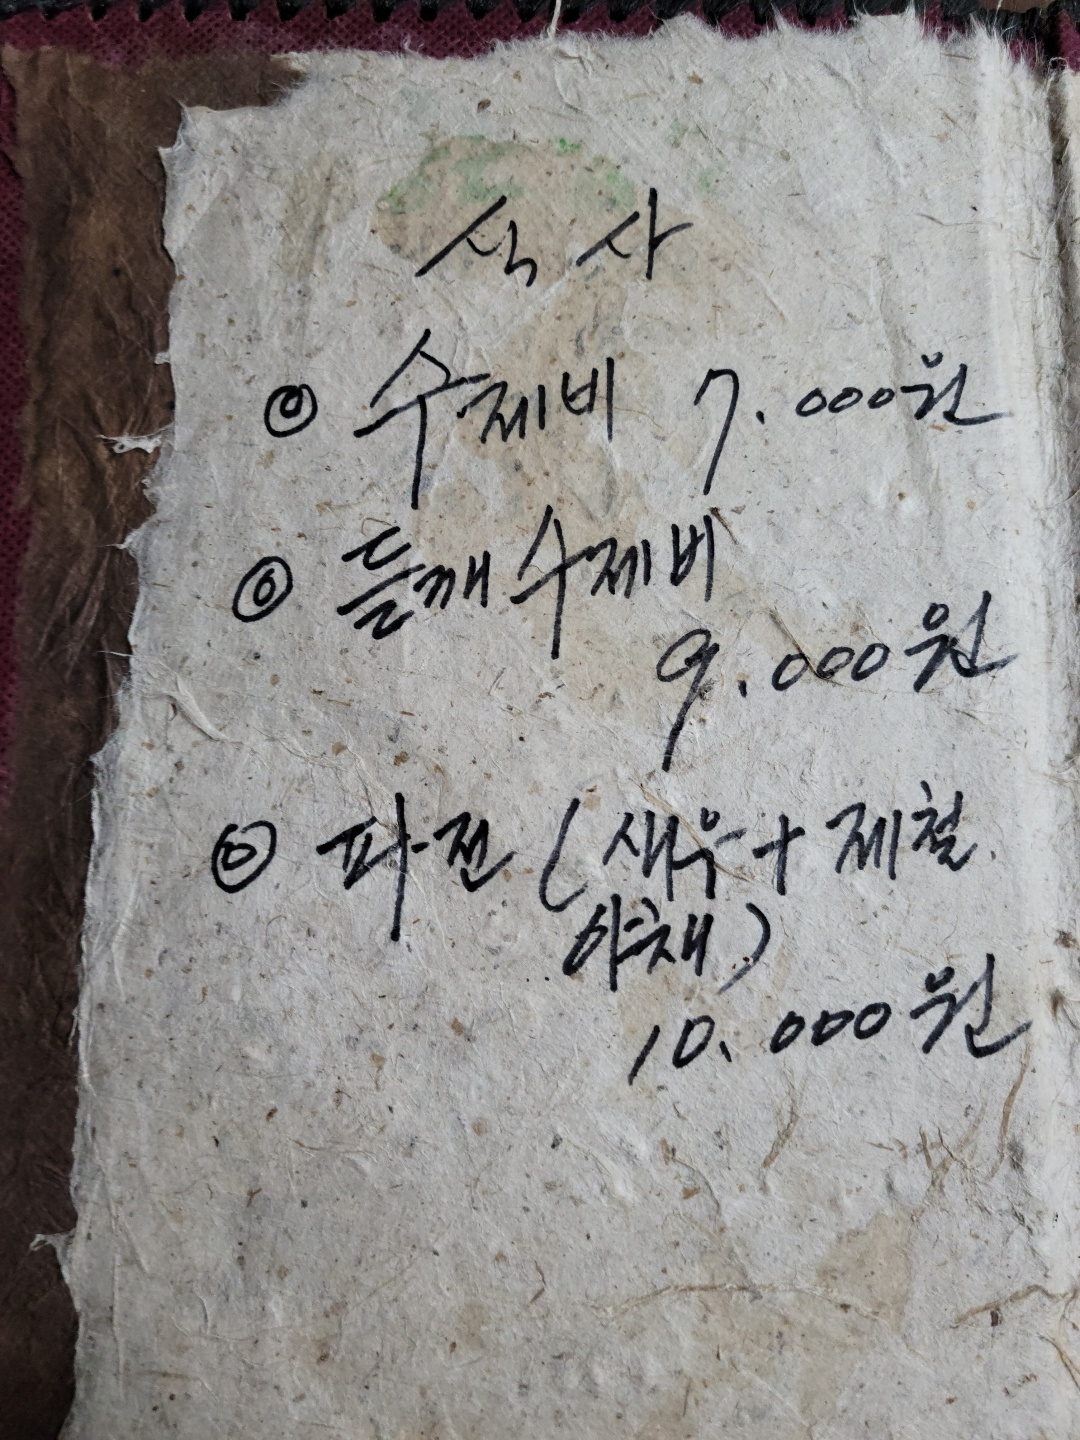 식사
◎ 수제비 7.000원
◎ 들깨수제비
9.000원
◎ 파전 (새우+제철
야채)
10.000원